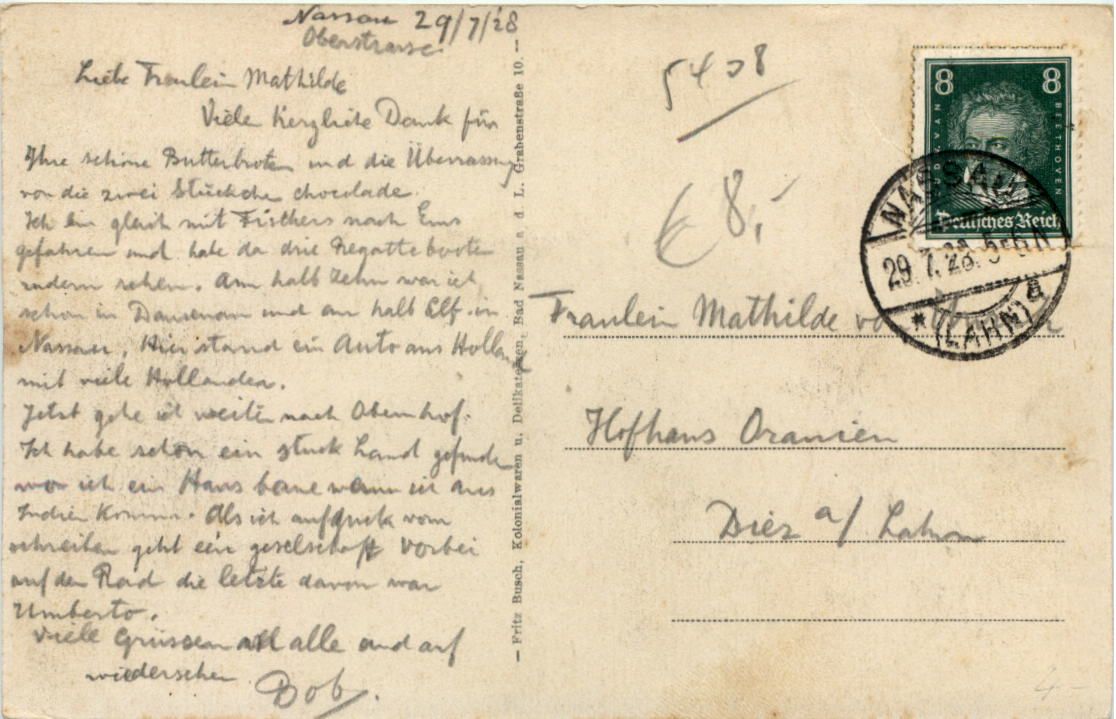 Nassau 29/7/28
Oberstrasse
Liebe Fraulein Mathilde
Viele herzliche Dank für
Ihre schöne Butterbroten und die Überrassung
von die zwei Stückchen chocolade.
Ich bin gleich mit Fischers nach Ems
gefahren und habe da drie Regatteboote
rudern sehen. Am halb Zehn war ich
schon in Dausenau und am halb Elf in
Nassau. Hier stand ein Auto aus Holland
mit viele Hollander.
Jetzt gehe ich weiter nach Obernhof.
Ich habe schon ein stuck Land gefunden
wor ich ein Haus baue wann ich aus
Indien komme. Als ich aufguck vom
schreiben geht ein geselschaft vorbei
auf den Rad die letzte davon war
Umberto.
Viele Grüssen alle und auf
wiedersehen
Bob.
— Fritz Busch, Kolonialwaren u. Delikatessen, Bad Nassau a. d. L. Grabenstraße 10. —
5408
€ 8,-
8 8
VAN BEETHOVEN
Deutsches Reich
NASSAU
29.7.28. 5-6 N
* (LAHN) a
Fraulein Mathilde
Hofhaus Oranien
Diez a/ Lahn
4-